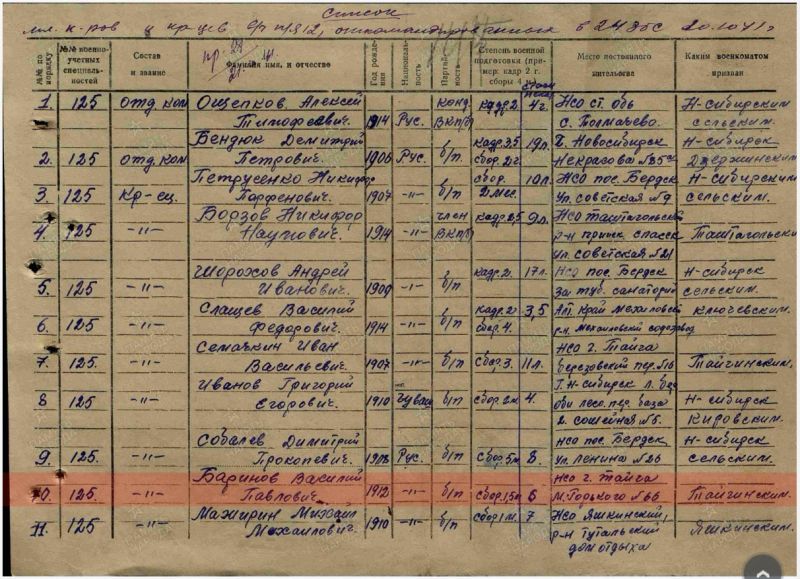 Список
мл. к-ров и кр-цев с/п п/я 12, откомандированных в 24 ЗСБ 20.10.41 г
№№ по порядку
№№ военно-учетных специальностей
Состав и звание
Фамилия, имя, и отчество
Год рождения
Национальность
Партийность
Степень военной подготовки (пример: кадр 2 г. сборы 4 м.)
Место постоянного жительства
Каким военкоматом призван
1. 125 отд. ком Ощепков Алексей Тимофеевич 1914 Рус. канд. ВКП/б кадр. 2 4 г. НСО ст. Обь с. Толмачево Н-Сибирским сельским.
2. 125 отд. ком Бендюк Демитрий Петрович. 1906 Рус. б/п кадр. 3,5 сбор. 2 г. 19 л. г. Новосибирск Некрасова № 35 Н-Сибирск Дзержинским
3. 125 кр-ец. Петрусенко Никифор Парфенович. 1907 -"- б/п сбор. 2 мес. 10 л. НСО пос. Бердск ул. Советская № 9 Н-Сибирским сельским.
4. 125 -"- Борзов Никифор Наумович. 1914 -"- член ВКП/б кадр. 2,5 9 л. НСО Таштагольск р-н прииск Спасск ул. Советская № 21 Таштагольским
5. 125 -"- Шорохов Андрей Иванович. 1909 -"- б/п кадр. 2 г. 17 л. НСО пос. Бердск за туб. санаторий Н-Сибирск сельским.
6. 125 -"- Слащев Василий Федорович. 1914 -"- б/п кадр. 2 г сбор. 4. 3,5 Алт. край Михайловск р-н Михайловский содозавод Ключевским.
7. 125 -"- Семочкин Иван Васильевич. 1907 -"- б/п сбор. 3. 11 л. НСО г. Тайга Березовский пер. № 16 Тайгинским.
8 125 -"- Иванов Григорий Егорович. 1910 Чуваш б/п сбор. 2 м. 4. г. Н-Сибирск л. база Оби лесо. пер. база 2. Сошейная № 5. Н-Сибирск Кировским.
9. 125. -"- Соболев Димитрий Прокопевич. 1908 Рус. б/п сбор 5 м. 8. НСО пос. Бердск ул. Ленина № 26 Н-Сибирск сельским.
10 125. -"- Баринов Василий Павлович. 1912 -"- б/п сбор. 1,5 м 6 НСО г. Тайга М. Горького № 66 Тайгинским.
11. 125 -"- Мажирин Михаил Михаилович. 1910 -"- б/п сбор 1 м. 7 НСО Яшкинский, р-н Тутальский дом отдыха Яшкинским.